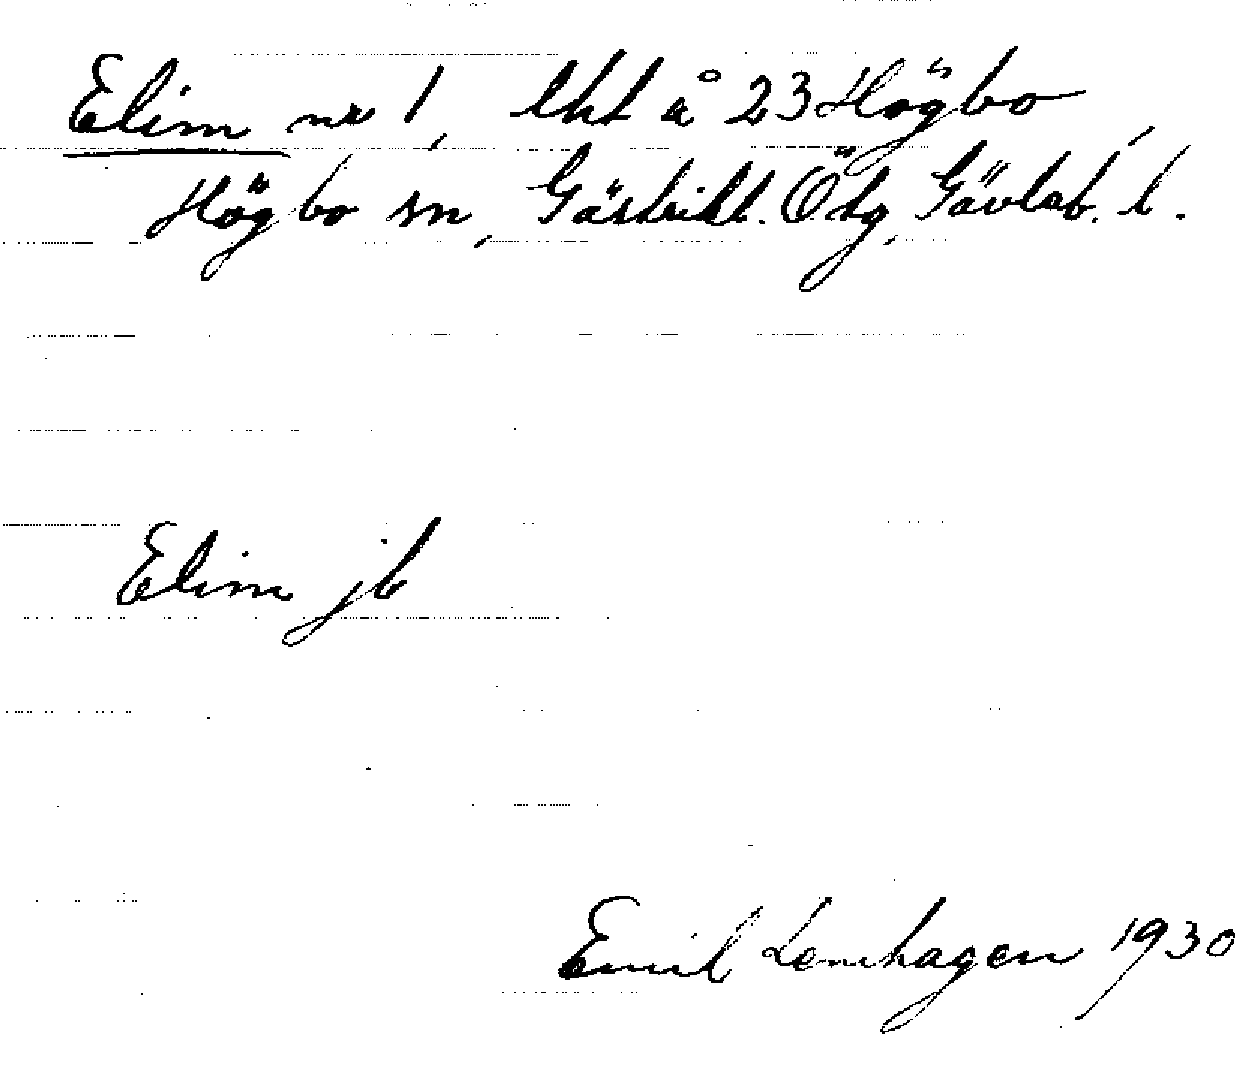 Elim nr 1, lht å 23 Högbo,
Högbo sn, Gästrikl. Ö tg, Gävleb. l.
Elim jb
Emil Lennhagen 1930